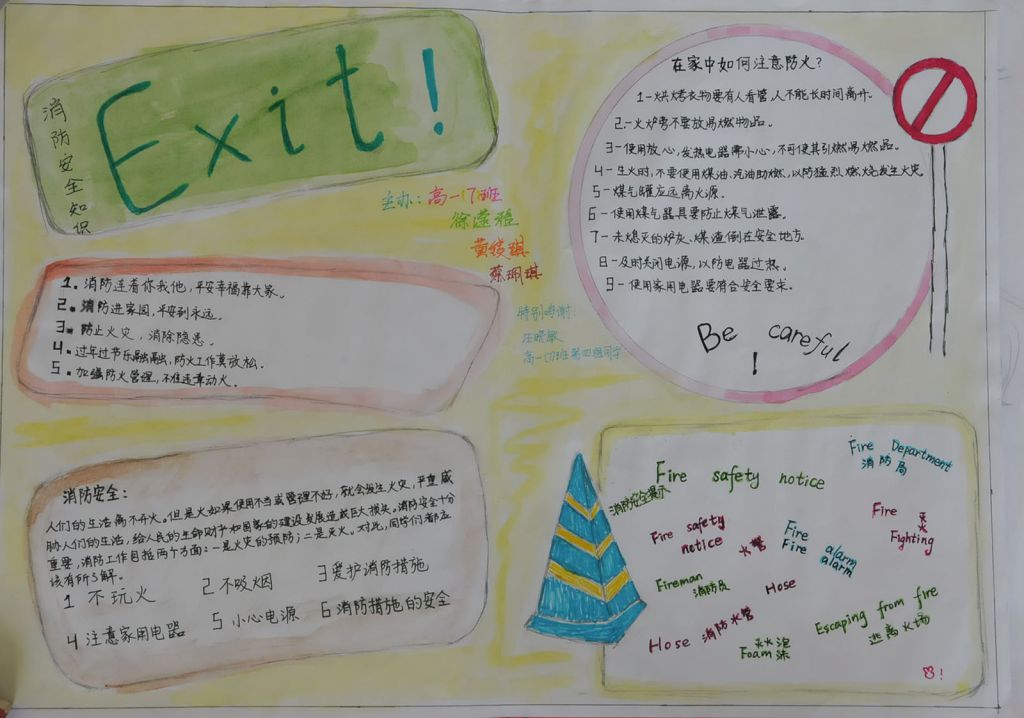 消防安全知识
Exit!
主办：高一17班
黄绫琪
蔡珮琪
1. 消防连着你我他，平安幸福靠大家。
2. 消防进家园，平安到永远。
3. 防止火灾，消除隐患。
4. 过年过节乐融融，防火工作莫放松。
5. 加强防火管理，不准违章动火。
特别鸣谢：
汪晓敏
高一17班第四组同学
在家中如何注意防火？
1-烘烤衣物要有人看管，人不能长时间离开。
2-火炉旁不要放易燃物品。
3-使用放心，发热电器需小心，不可使其引燃易燃品。
4-生火时，不要使用煤油、汽油助燃，以防猛烈燃烧发生火灾
5-煤气罐应远离火源。
6-使用煤气器具要防止煤气泄露。
7-未熄灭的炉灰、煤渣倒在安全地方。
8-及时关闭电源，以防电器过热。
9-使用家用电器要符合安全要求。
Be careful
!
消防安全：
人们的生活离不开火。但是火如果使用不当或管理不好，就会发生火灾，严重威
胁人们的生活，给人民的生命财产和国家的建设发展造成巨大损失。消防安全十分
重要，消防工作包括两个方面：一是火灾的预防；二是灭火。对此，同学们都应
该有所了解。
1 不玩火 2 不吸烟 3 爱护消防措施
4 注意家用电器 5 小心电源 6 消防措施的安全
Fire Department
消防局
Fire safety notice
消防安全展示
Fire safety
notice 火警
Fire
Fire alarm
alarm
Fire 灭火
Fighting
Fireman
消防员
Hose
Hose 消防水管
Foam
Escaping from fire
逃离火场
!